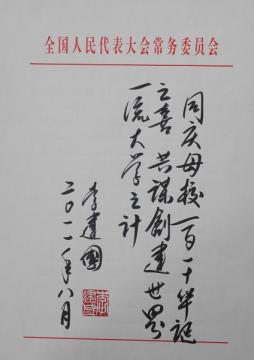 全国人民代表大会常务委员会
同庆母校一百一十华诞
之喜 共谋創建世界
一流大学之计
李建國
二〇一一年八月